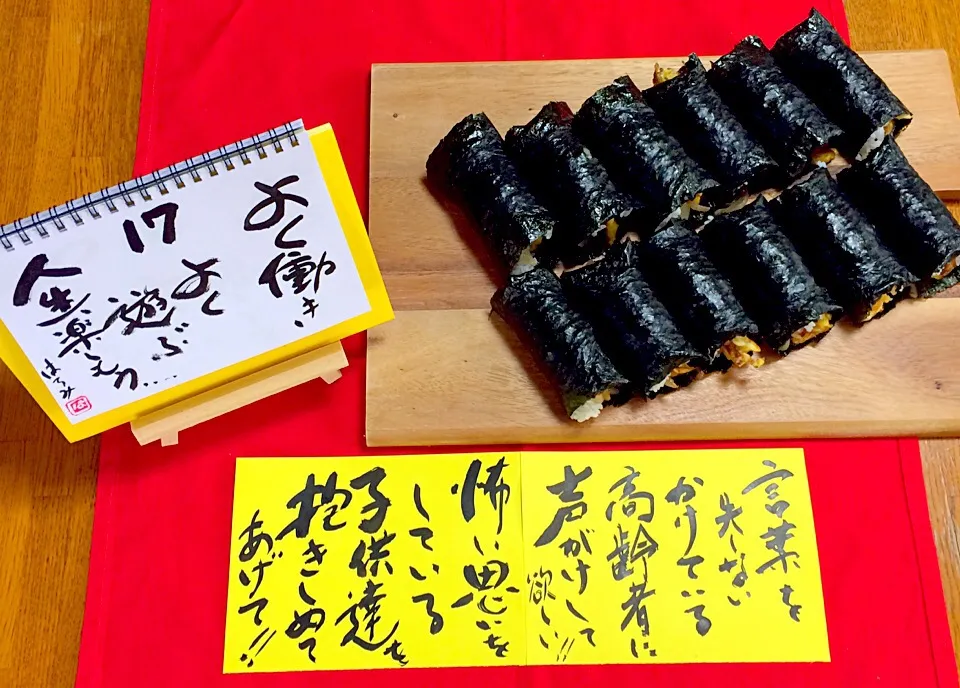 17
よく働き、
よく
遊ぶ
人生楽しみ方....
はるみ
言葉を
失しない
かけている
高齢者に
声がけして
欲しい!!
怖い思いを
している
子供達を
抱きしめて
あげて!!